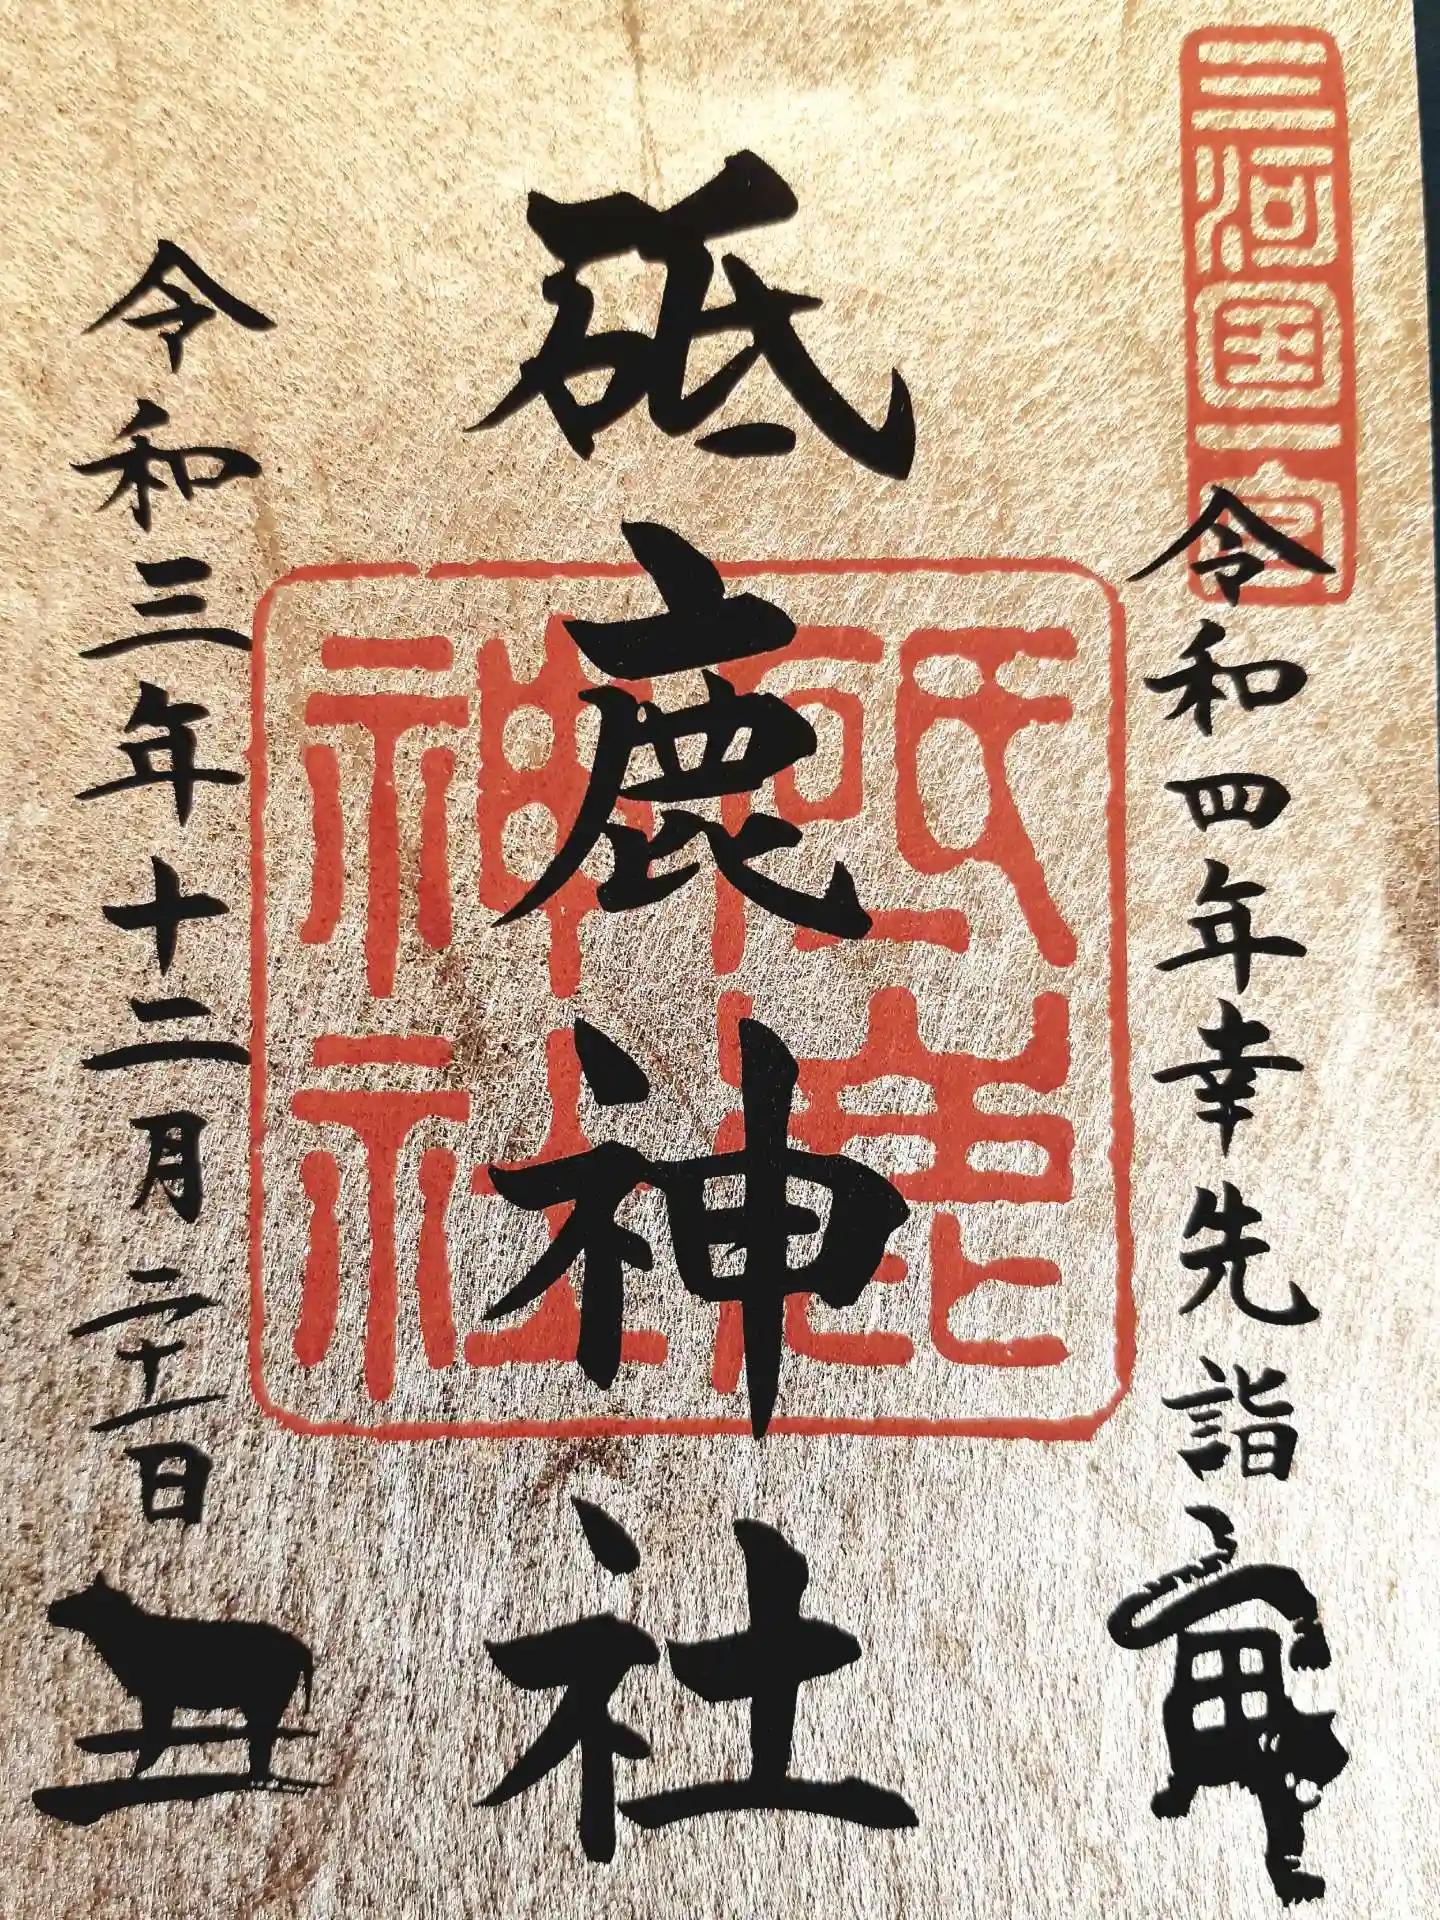 三河国一宮
令和四年幸先詣
寅
砥鹿神社
砥鹿神社
令和三年十二月二十二日
丑